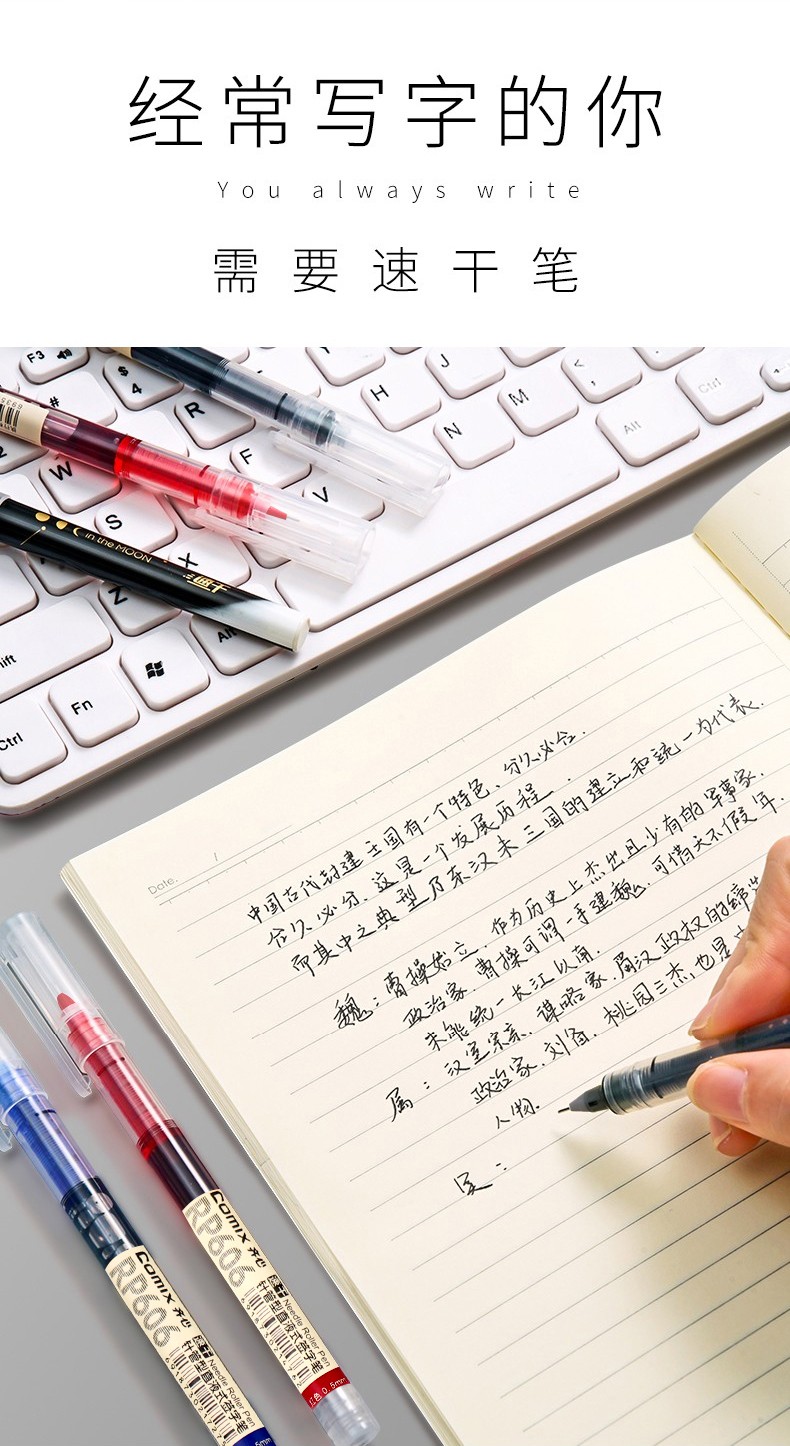 经常写字的你
You always write
需要速干笔
F3
$
4
#
R
W
F
S
V
X
Z
H
J
N
M
Alt
Ctrl
Fn
Ctrl
in the MOON
速干
Date.
中国古代封建王国有一个特色、分久必合.
合久必分、这是一个发展历程.
而其中之典型乃东汉末三国的建立和统一为代表.
魏:曹操始立、作为历史上杰出且少有的军事家.
政治家、曹操可谓一手建魏、可惜天不假年.
未能统一长江以南.
汉室宗亲、谋略家、蜀汉政权的缔造
政治家、刘备、桃园三杰,也是
人物.
Comix 齐心
RP606
Needle Roller Pen
针管型直液式签字笔
红色 0.5mm
Comix 齐心
RP606
Needle Roller Pen
针管型直液式签字笔
0.5mm